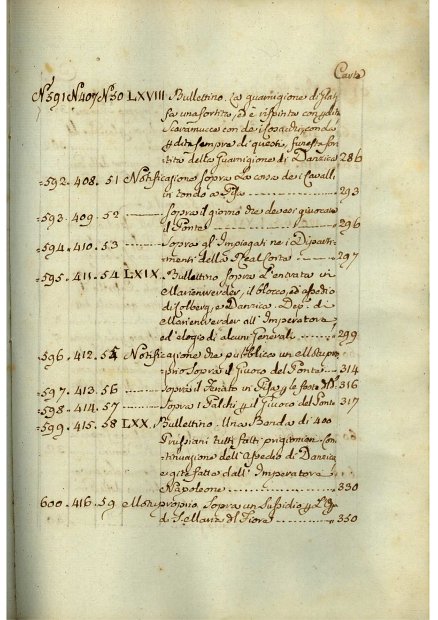 Carte
N.591 N.407 N.50 LXVIII Bullettino. La guarnigione di
fa una sortita, ed è rispinta con
Scaramucce con de i Cosacchi,
perdita sempre di questi, funesta sor-
tita della Guarnigione di Danzica 286
=592. 408. 51 Notificazione sopra La corsa de i Cavalli,
in tondo a Pisa 293
=593. 409. 52 Sopra il giorno che devesi giuocare
il Ponte 296
=594. 410. 53 Sopra gl'Impiegati ne i Dipart-
menti della Real Corte 297
=595. 411. 54 LXIX. Bullettino sopra L'entrata in
Marienwerder, il blocco, ed assedio
di Colberg, e Danzica. Dep. di
Marienwerder all'Imperatore,
ed elogio di alcuni Generali 299
596. 412. 55 Notificazione che pubblica un Motupro-
prio Sopra il Giuoco del Ponte 314
=597. 413. 56 Sopra il Teatro in Pisa p le feste 316
=598. 414. 57 Sopra i Palchi p il Giuoco del Ponte 317
=599. 415. 58 LXX. Bullettino. Una Banda di 400
Prussiani tutti fatti prigionieri con-
tinuazione dell'Assedio di Danzica
e gite fatte dall'Imperatore
Napoleone 330
600. 416. 59 Motuproprio Sopra un Sussidio p L'Op.a
di S. Maria del Fiore 350